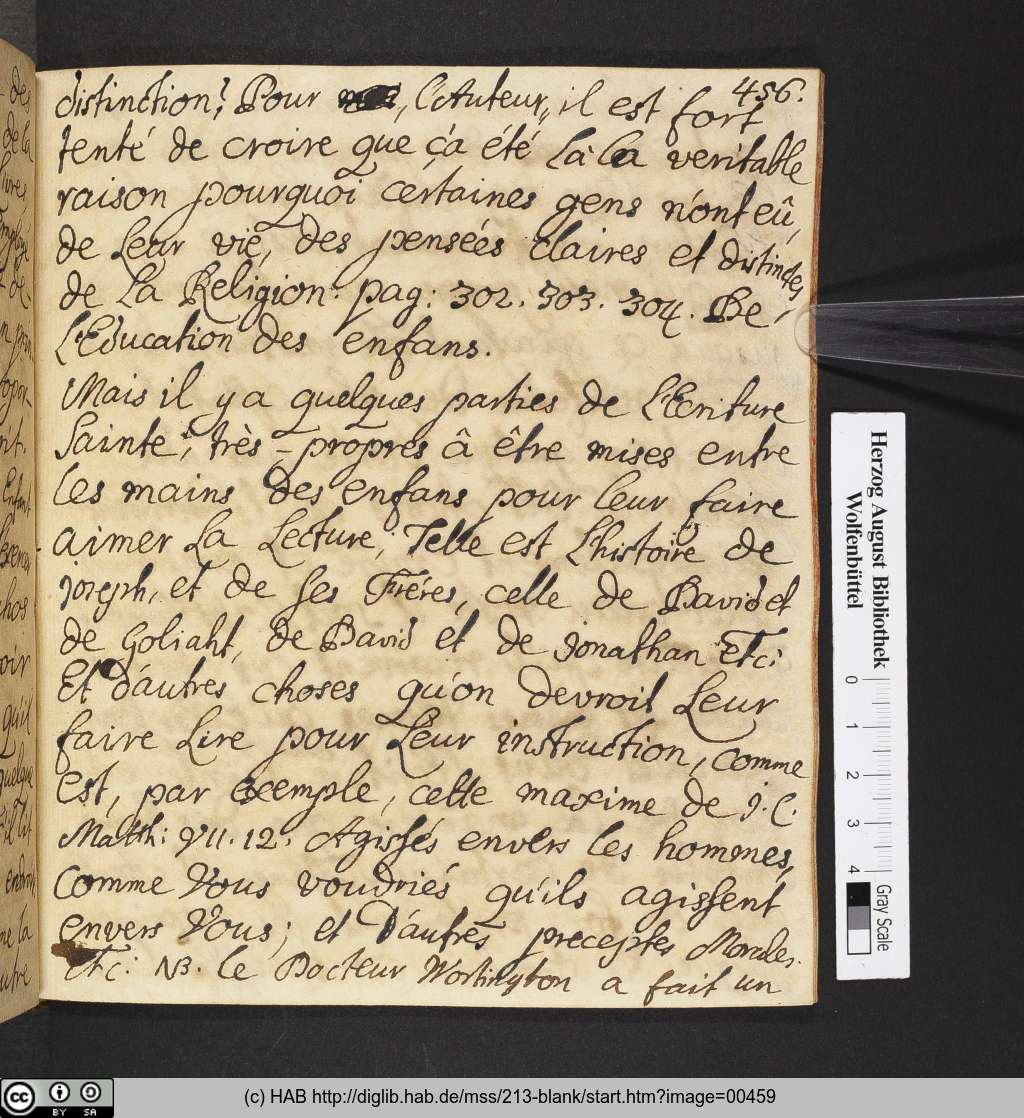 456.
distinction? Pour , l'Auteur, il est fort
tenté de croire que ç'a été Là La veritable
raison pourquoi certaines gens n'ont eû,
de Leur vie, des pensées claires et distinctes
de La Religion: pag: 302. 303. 304. De
L'Education des enfans.
Mais il y a quelques parties de L'Ecriture
Sainte, très-propres â être mises entre
Les mains des enfans pour leur faire
aimer La Lecture; Telle est L'histoire de
Joseph, et de ses Fréres, celle de David et
de Goliaht, de David et de Jonathan Etc:
Et d'autres choses qu'on devroit Leur
faire Lire pour Leur instruction, comme
est, par exemple, cette maxime de J. C.
Matth: VII. 12. Agissés envers les hommes,
Comme Vous voudriés qu'ils agissent
envers Vous; et D'autres preceptes Morales.
Etc: NB. Le Docteur Wortington a fait un
des
de la
livres
qu'il
quelque
ne la
autre
Herzog August Bibliothek
Wolfenbüttel
0 1 2 3 4
Gray Scale
cc BY SA
(c) HAB http://diglib.hab.de/mss/213-blank/start.htm?image=00459